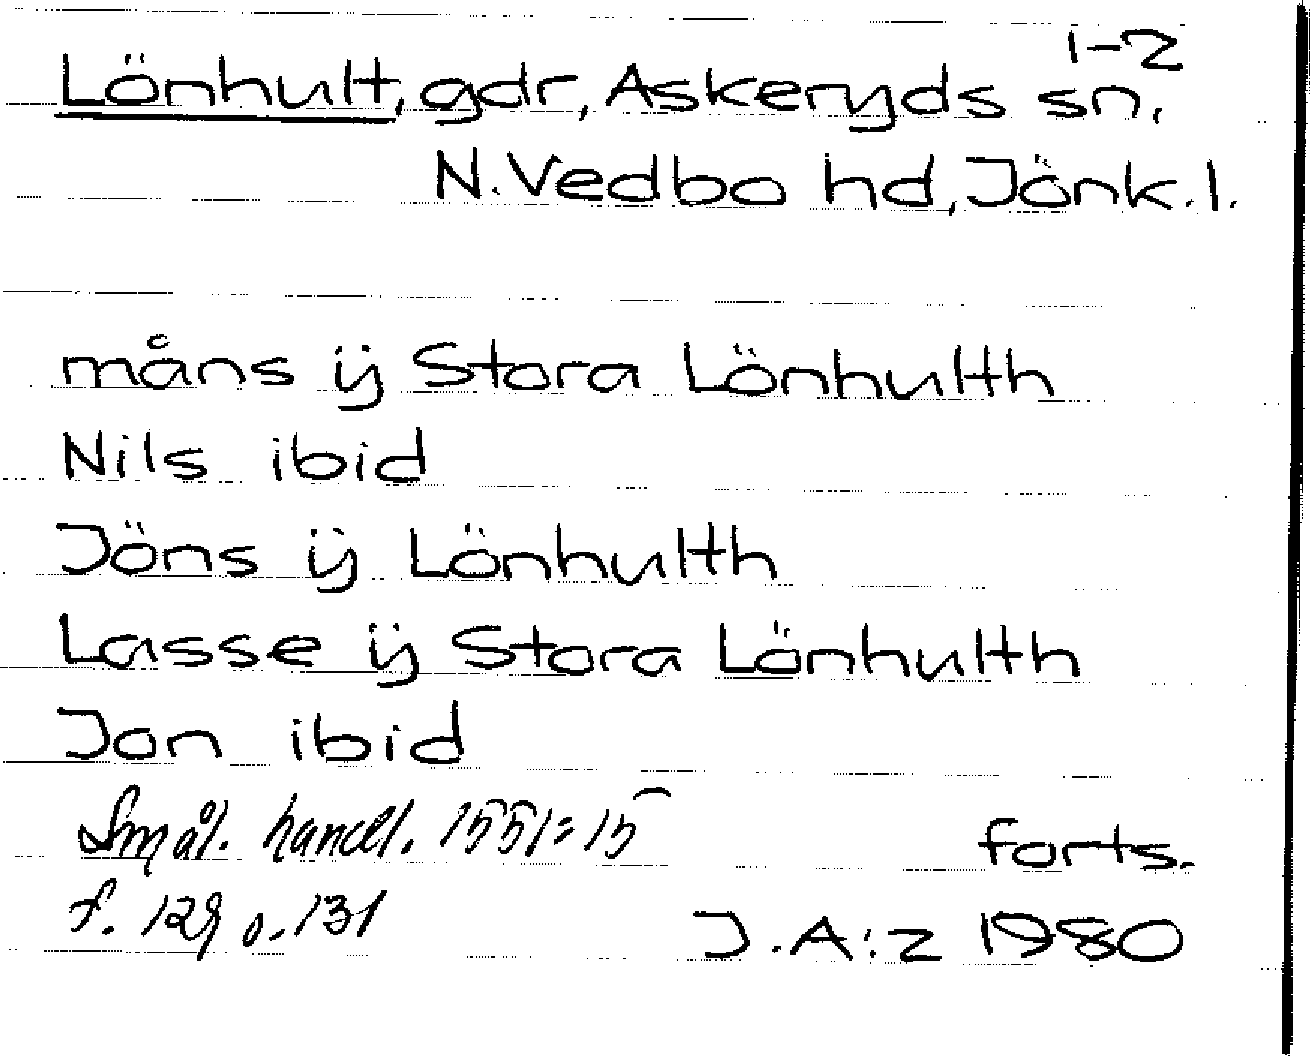 1-2
Lönhult, gdr, Askeryds sn,
N. Vedbo hd, Jönk. l.
måns ÿ Stora Lönhulth
Nils ibid
Jöns ÿ Lönhulth
Lasse ÿ Stora Lönhulth
Jon ibid
Smål. handl. 1551:15
forts.
f. 129 o. 131
J.A:z 1980